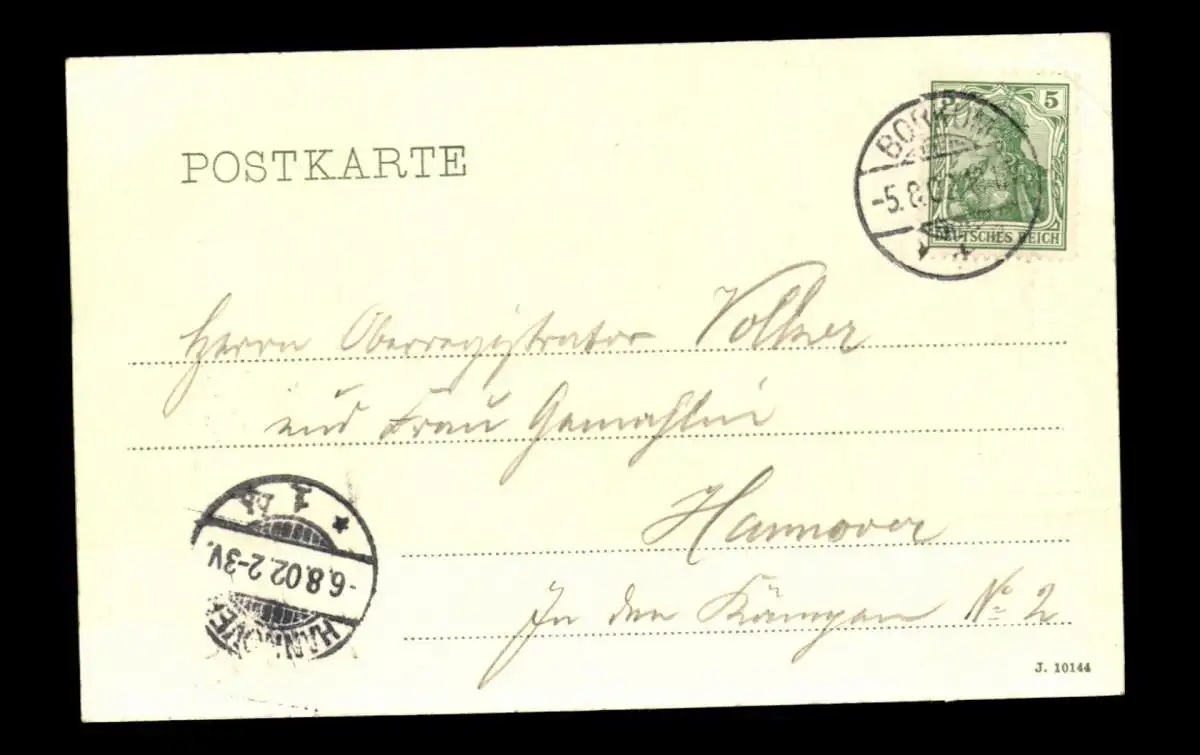 POSTKARTE
5
DEUTSCHES REICH
BORKUM
-5.8.02
Herrn Oberregistrator Volker
und Frau Gemahlin
Hannover
In den Kämpen № 2
* 1
-6.8.02.2-3V.
HANNOVER
J. 10144